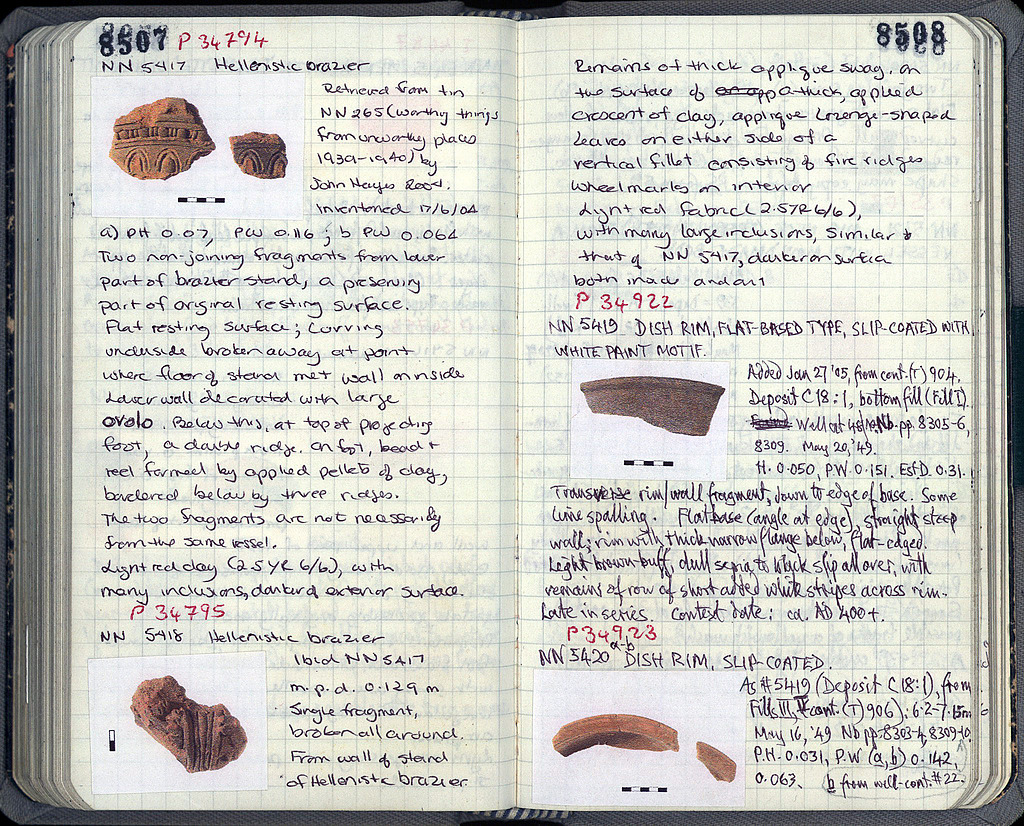 8507 P 34794
NN 5417 Hellenistic brazier
Retrieved from tin
NN 265 (worthy things
from unworthy places
1939-1940) by
John Hayes 2004.
Inventoried 17/6/04
a) PH 0.07, PW 0.116; b PW 0.064
Two non-joining fragments from lower
part of brazier stand, a preserving
part of original resting surface.
Flat resting surface; curving
underside broken away at point
where floor of stand met wall on inside
Lower wall decorated with large
ovolo. Below this, at top of projecting
foot, a double ridge. On foot, bead +
reel formed by applied pellets of clay,
bordered below by three ridges.
The two fragments are not necessarily
from the same vessel.
Light red clay (2.5 YR 6/6), with
many inclusions, darker exterior surface.
P 34795
NN 5418 Hellenistic brazier
Ibid NN 5417
m.p.d. 0.129 m
Single fragment,
broken all around.
From wall of stand
of Hellenistic brazier.
8508
Remains of thick applique swag, on
the surface of a thick, applied
crescent of clay, applique lozenge-shaped
leaves on either side of a
vertical fillet consisting of five ridges
wheelmarks on interior
Light red fabric (2.5YR 6/6),
with many large inclusions, similar to
that of NN 5417, darker on surface
both inside and out
P 34922
NN 5419 DISH RIM, FLAT-BASED TYPE, SLIP-COATED WITH
WHITE PAINT MOTIF.
Added Jan 27 '05, from cont. (T) 904.
Deposit C 18:1, bottom fill (Fill I).
Well at Nb. pp. 8305-6,
8309. May 20, '49.
H. 0.050, P.W. 0.151. Est D. 0.31.
Transverse rim/wall fragment, down to edge of base. Some
lime spalling. Flat base (angle at edge), straight steep
wall; rim with thick narrow flange below, flat-edged.
Light brown-buff, dull sepia to black slip all over, with
remains of row of short added white stripes across rim.
Late in series. Context date: ca. AD 400+.
P 34923
NN 5420 a-b DISH RIM, SLIP-COATED.
As #5419 (Deposit C 18:1), from
Fills III, V cont. (T) 906): 6.2-7.15m
May 16, '49 Nb pp. 8303-4, 8309-10.
P.H. 0.031, P.W (a, b) 0.142,
0.063. b from well-cont. #22.